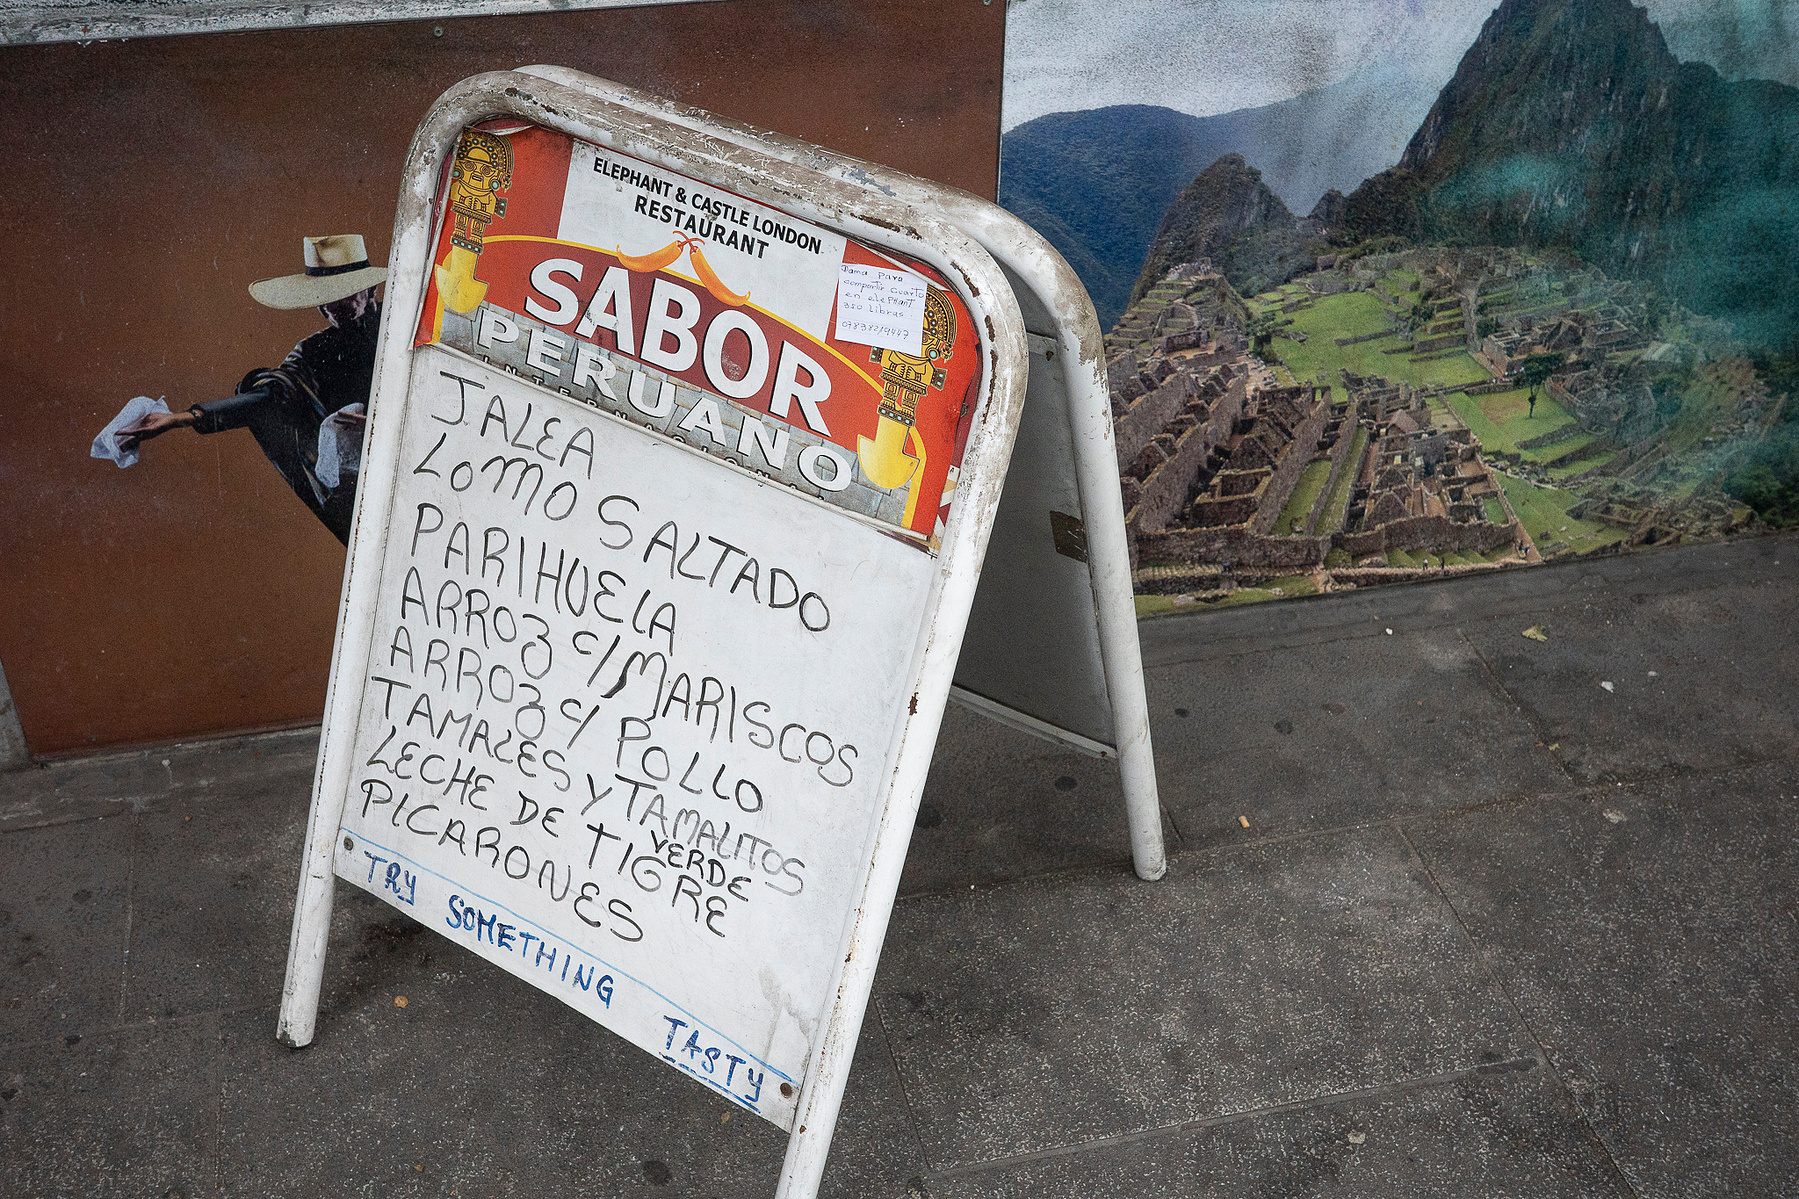 ELEPHANT & CASTLE LONDON
RESTAURANT
SABOR
PERUANO
INTERNACIONAL
Dama para
compartir cuarto
en elePHant
350 libras.
JALEA
LOMO SALTADO
PARIHUELA
ARROZ c/ MARISCOS
ARROZ c/ POLLO
TAMALES y TAMALITOS
VERDE
LECHE DE TIGRE
PICARONES
TRY SOMETHING TASTY